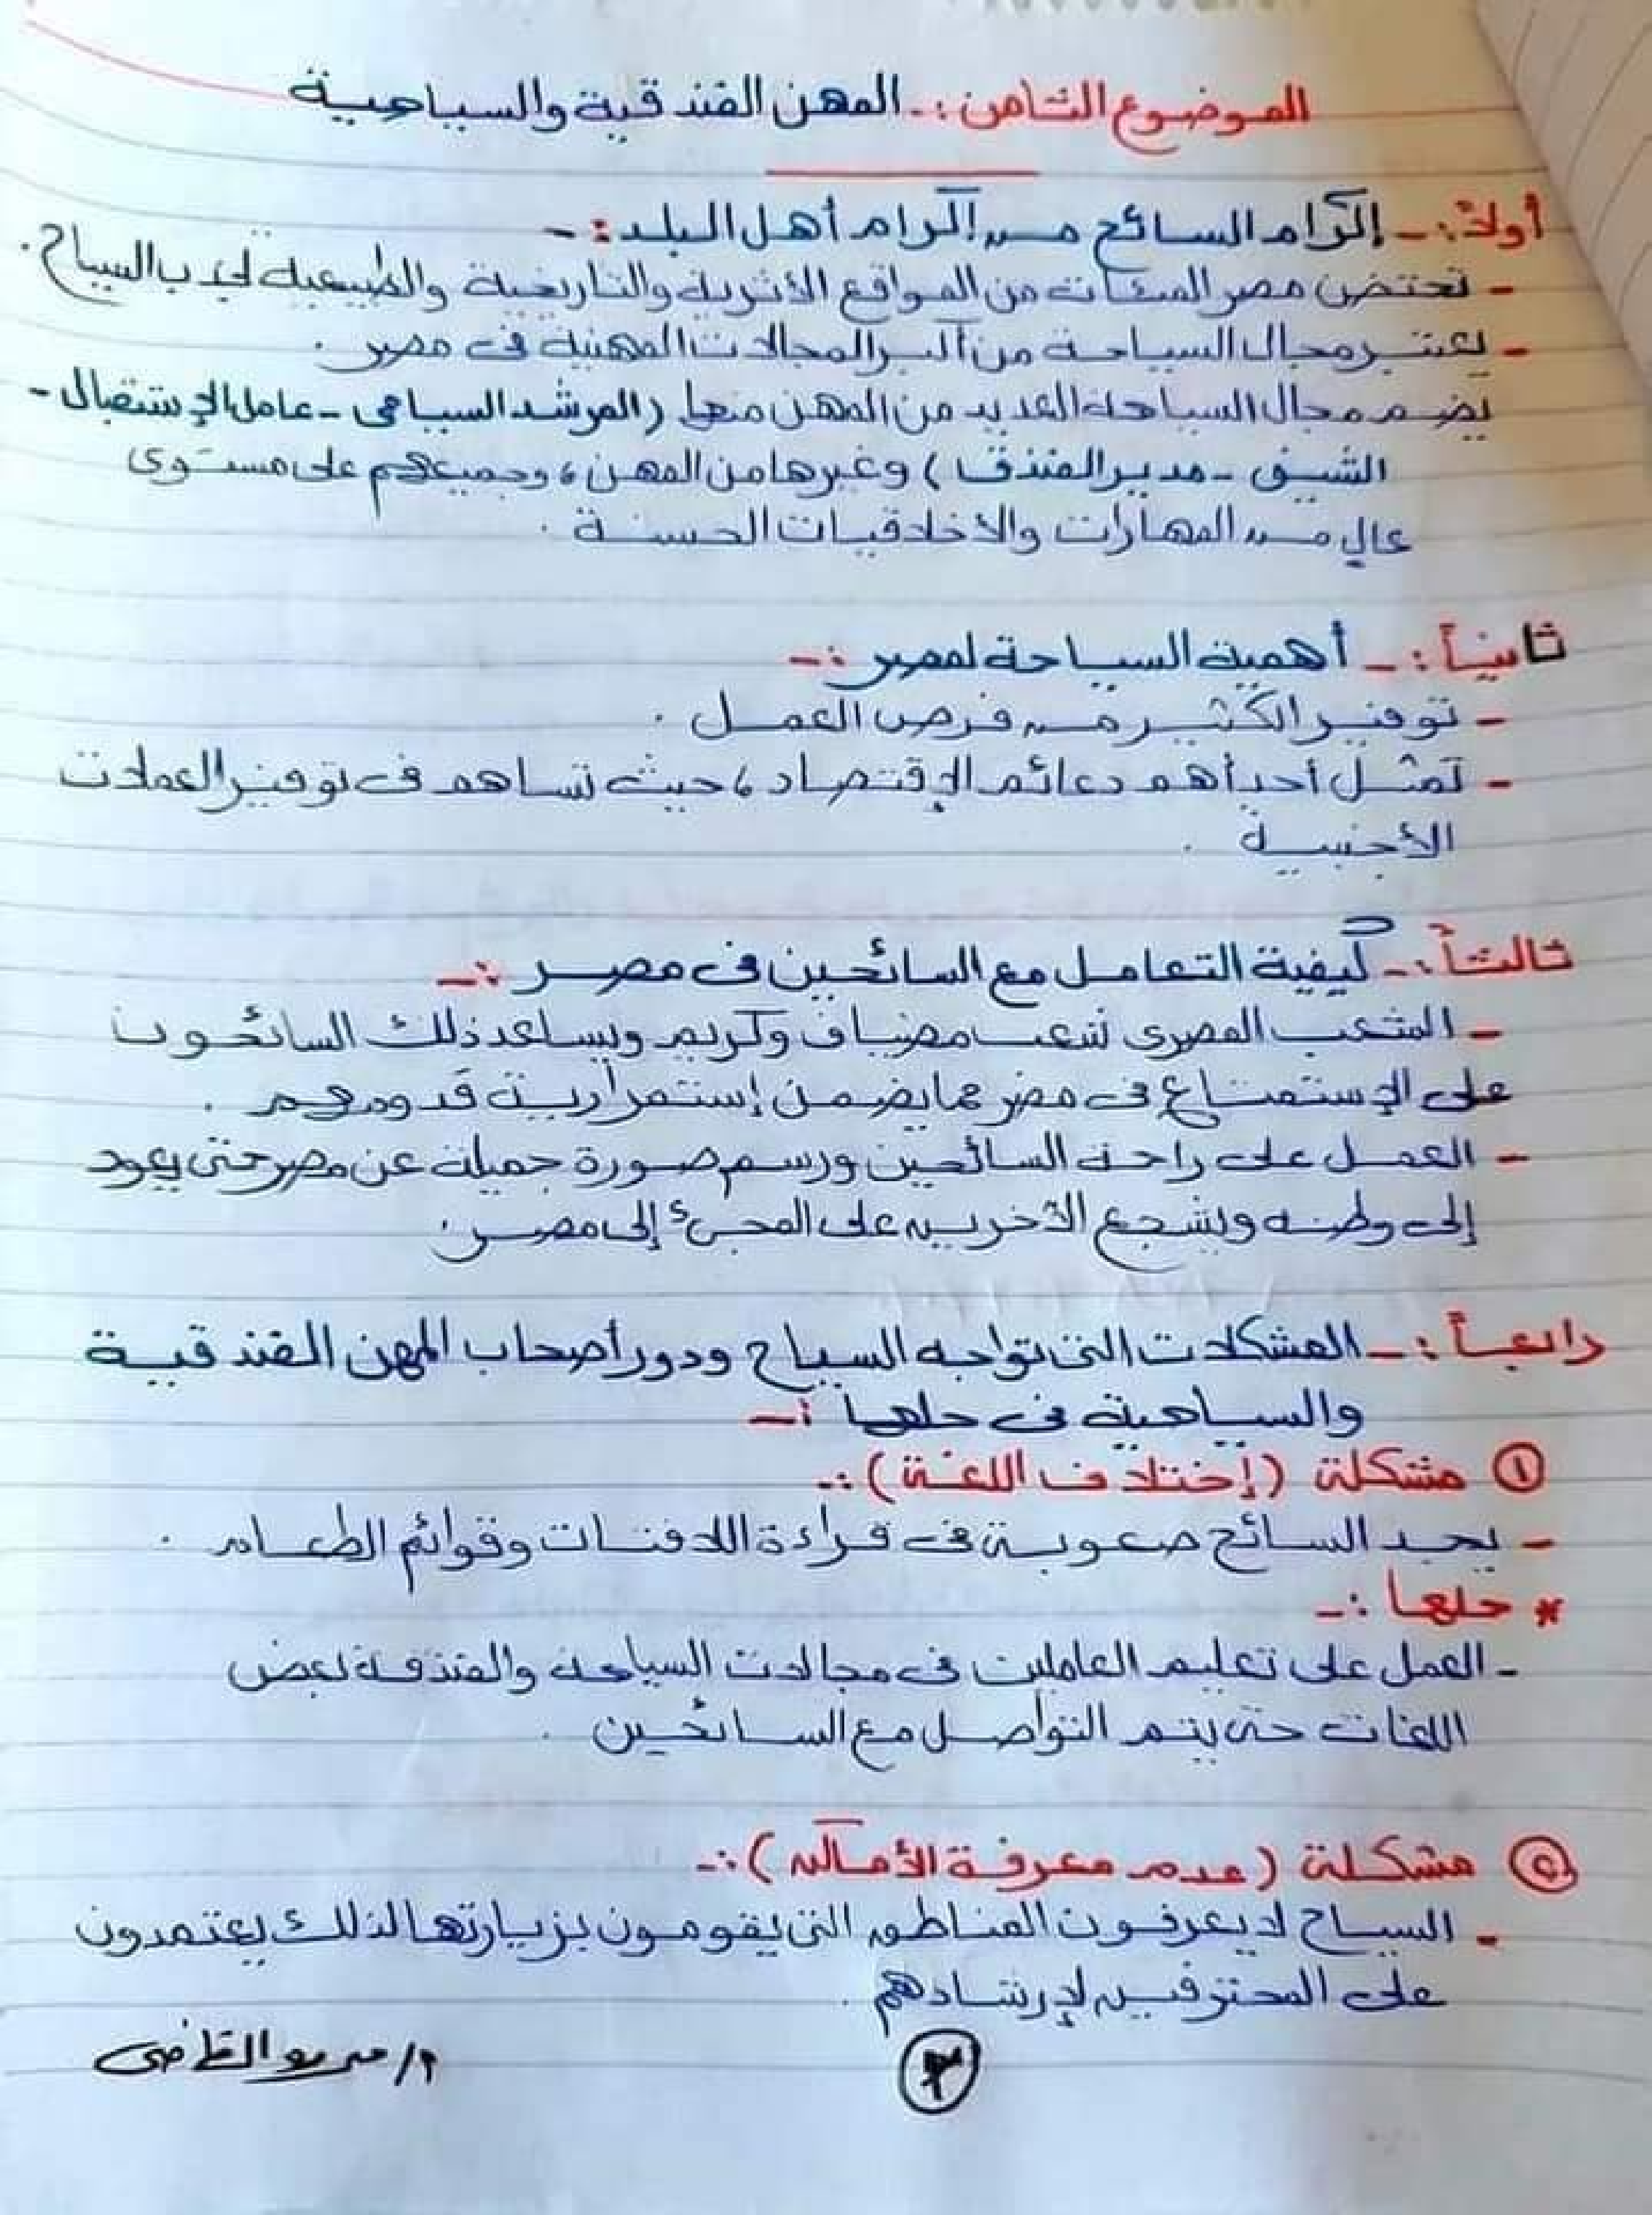 الموضوع الثامن :- المهن الفندقية والسياحية
أولاً :- إكرام السائح من إكرام أهل البلد :-
- تحتضن مصر المئات من المواقع الأثرية والتاريخية والطبيعية لجذب السياح .
- يعتبر مجال السياحة من أكبر المجالات المهنية فى مصر .
يضم مجال السياحة العديد من المهن منها ( المرشد السياحى - عامل الإستقبال -
الشيف - مدير الفندق ) وغيرها من المهن ، وجميعهم على مستوى
عالٍ من المهارات والأخلاقيات الحسنة .
ثانياً :- أهمية السياحة لمصر :-
- توفير الكثير من فرص العمل .
- تمثل أحد أهم دعائم الإقتصاد ، حيث تساهم فى توفير العملات
الأجنبية .
ثالثاً :- كيفية التعامل مع السائحين فى مصر :-
- الشعب المصرى شعب مضياف وكريم ويساعد ذلك السائحون
على الإستمتاع فى مصر مما يضمن إستمرارية قدومهم .
- العمل على راحة السائحين ورسم صورة جميلة عن مصر حتى يعود
إلى وطنه ويشجع الآخرين على المجئ إلى مصر .
رابعاً :- المشكلات التى تواجه السياح ودور أصحاب المهن الفندقية
والسياحية فى حلها :-
① مشكلة ( إختلاف اللغة ) :-
- يجد السائح صعوبة فى قراءة اللافتات وقوائم الطعام .
* حلها :-
- العمل على تعليم العاملين فى مجالات السياحة والفندقة بعض
اللغات حتى يتم التواصل مع السائحين .
② مشكلة ( عدم معرفة الأماكن ) :-
- السياح لا يعرفون المناطق التى يقومون بزيارتها لذلك يعتمدون
على المحترفين لإرشادهم .
القاضى